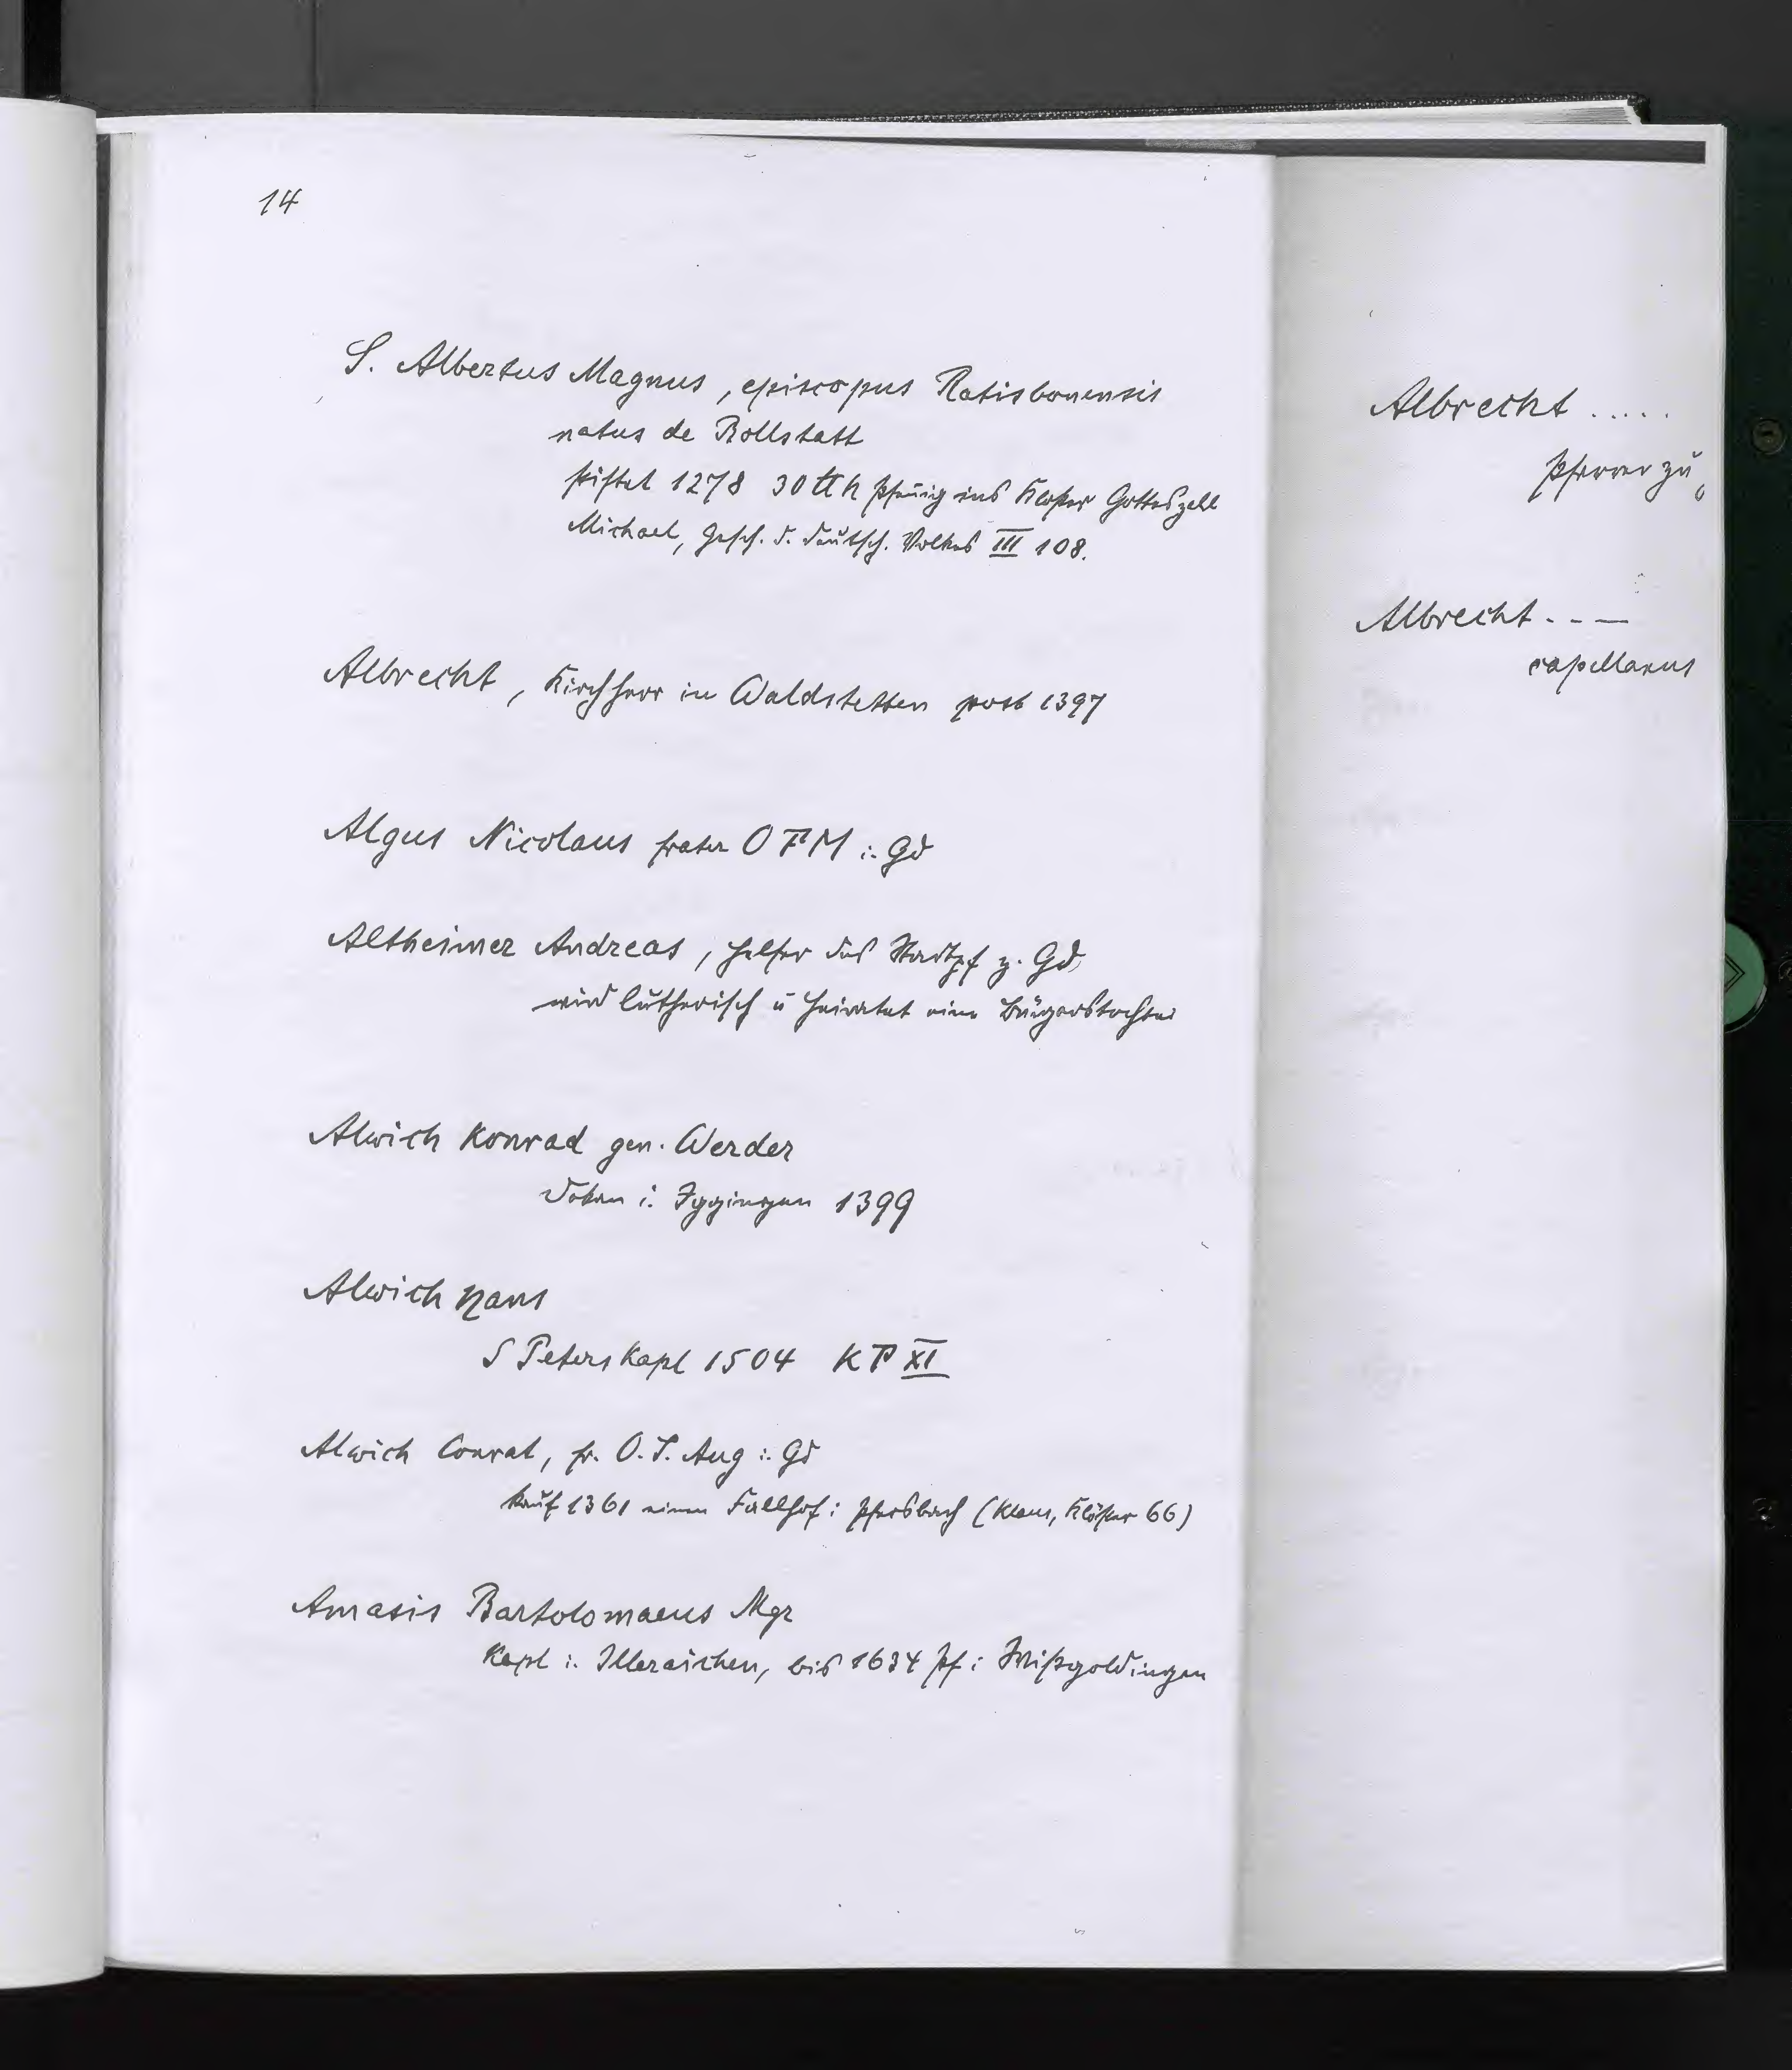 14
S. Albertus Magnus, episcopus Ratisbonensis
natus de Bollstatt
stiftet 1278 30 ℔ h Pfennig ins Kloster Gotteszell
Michael, Gesch. d. deutsch. Volkes III 108.
Albrecht, Kirchherr in Waldstetten post 1397
Algus Nicolaus frater OFM i. Gd
Altheimer Andreas, Helfer des Stadtpf z. Gd
wird lutherisch u heiratet eine Bürgerstochter
Alwich Konrad gen. Werder
Dekan i. Iggingen 1399
Alwich Hans
S Peters Kapl 1504 KP XI
Alwich Conrat, fr. O.S. Aug i. Gd
kauf 1361 einen Fallhof i Pfersbach (Klaus, Klöster 66)
Amasis Bartolomaeus Mgr
Kapl i. Illeraichen, bis 1634 Pf i Wißgoldingen
Albrecht .....
Pfarrer zu
Albrecht - - —
capellanus